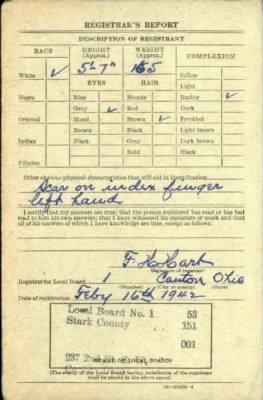 REGISTRAR'S REPORT
DESCRIPTION OF REGISTRANT
RACE HEIGHT (Approx.) WEIGHT (Approx.) COMPLEXION
5-7" 165 Sallow
White ✓ EYES HAIR Light
Negro Blue Blonde Ruddy ✓
Gray ✓ Red Dark
Oriental Hazel Brown ✓ Freckled
Brown Black Light brown
Indian Black Gray Dark brown
Bald Black
Filipino
Other obvious physical characteristics that will aid in identification
Scar on index finger
left hand
I certify that my answers are true; that the person registered has read or has had
read to him his own answers; that I have witnessed his signature or mark and that
all of his answers of which I have knowledge are true, except as follows:
(Signature of registrar)
Registrar for Local Board 1 Canton Ohio
(Number) (City or county) (State)
Date of registration Feby 16th 1942
Local Board No. 1 53
Stark County 151
001
237 2nd
(STAMP OF LOCAL BOARD)
(The stamp of the Local Board having jurisdiction of the registrant
shall be placed in the above space)